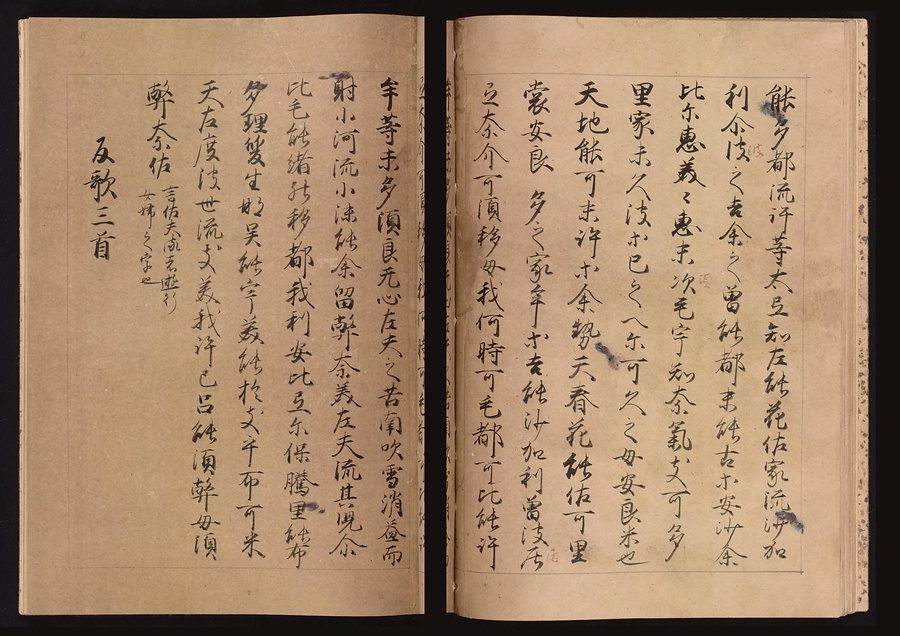 能多都流許等太弖知左能花佐家流沙加
利尓波之吉余之曽能都末能古等安沙余
比尓恵美々恵末須毛宇知奈氣支可多
里家末久波等己之へ尓可久之母安良米也
天地能可未許等余勢天春花能佐可里
裳安良多之家牟等吉能沙加利曽波居
弖奈介可須移母我何時可毛都可比能許
牟等末多須良无心左夫之苦南吹雪消益而
射水河流水沫能余留弊奈美左夫流其兒尓
比毛能緒能移都我利安比弖尓保騰里能布
多理雙坐那呉能宇美能於支乎布可米
天左度波世流支美我許己呂能須弊母須
弊奈佐 言佐夫流者遊行
女婦之字也
反歌三首